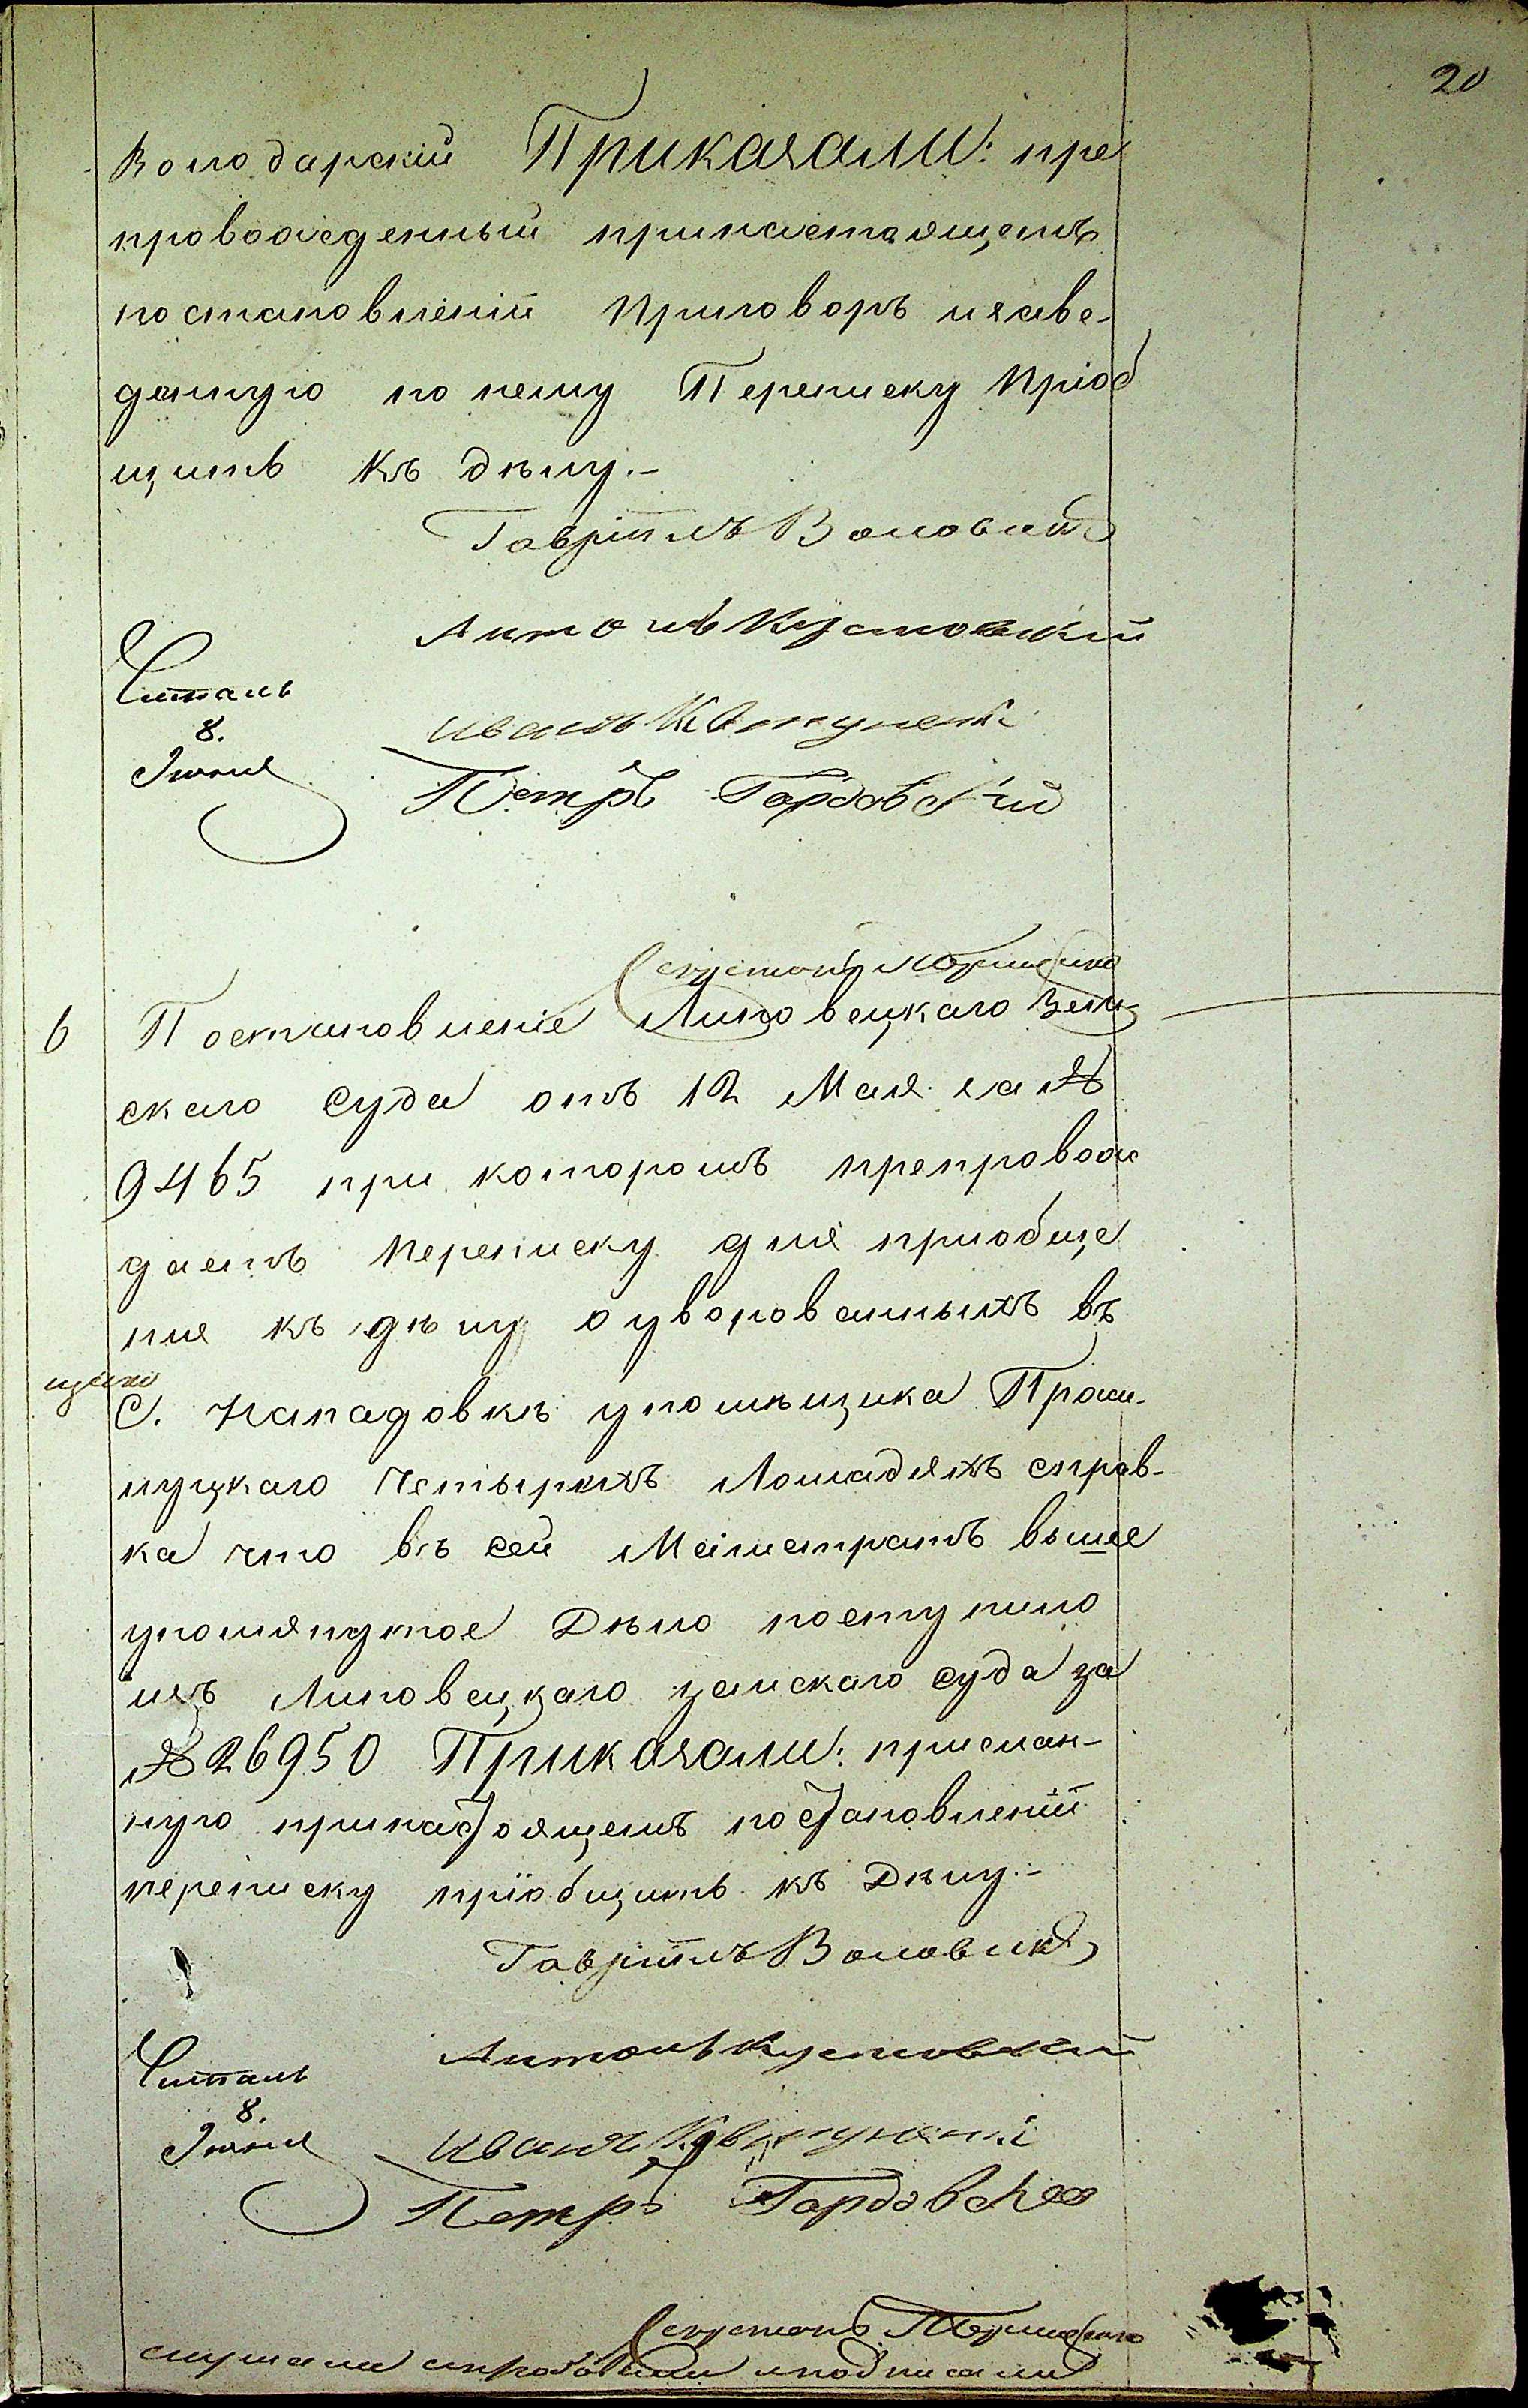 20
Володарскій Приказали: пре
провожденный принастоящемъ
постановленіи приговоръ изаве-
денную по нему Переписку Пріоб
щить къ дѣлу.-
Гавріилъ Воловикъ
Антонъ Кустовскій
Читалъ
8.
Іюня
Иванъ
Петръ Гордовскій
6 Постановленіе Липовецкаго Зем-
скаго Суда отъ 12 Мая за №
9465 при которомъ препровож
даетъ переписку для приобще
ния къ дѣлу оуворованныхъ въ
С. Нападовкѣ упомѣщика Прош-
луцкаго четырѣхъ Лошадяхъ справ-
ка что въ сей Магистратъ выше
упомянутое Дѣло поступило
изъ Липовецкаго земскаго суда за
№ 26950 Приказали: прислан-
ную принастоящемъ постановленіи
переписку пріобщить къ Дѣлу.-
Гавріилъ Воловикъ
Антонъ Кустовскій
Читалъ
8.
Іюня
Иванъ
Петръ Гордовскій
слушали иподписали